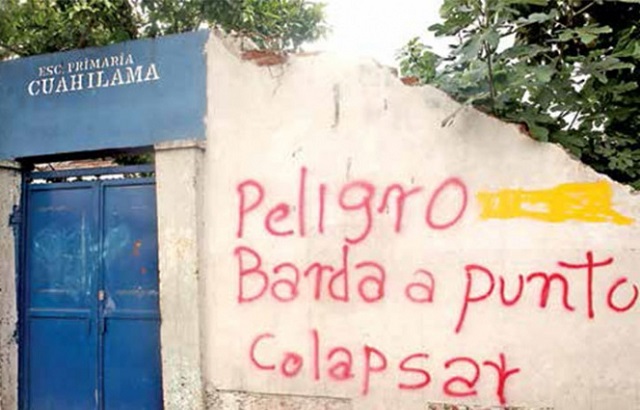 ESC. PRIMARIA
CUAHILAMA
Peligro
Barda a punto
Colapsar